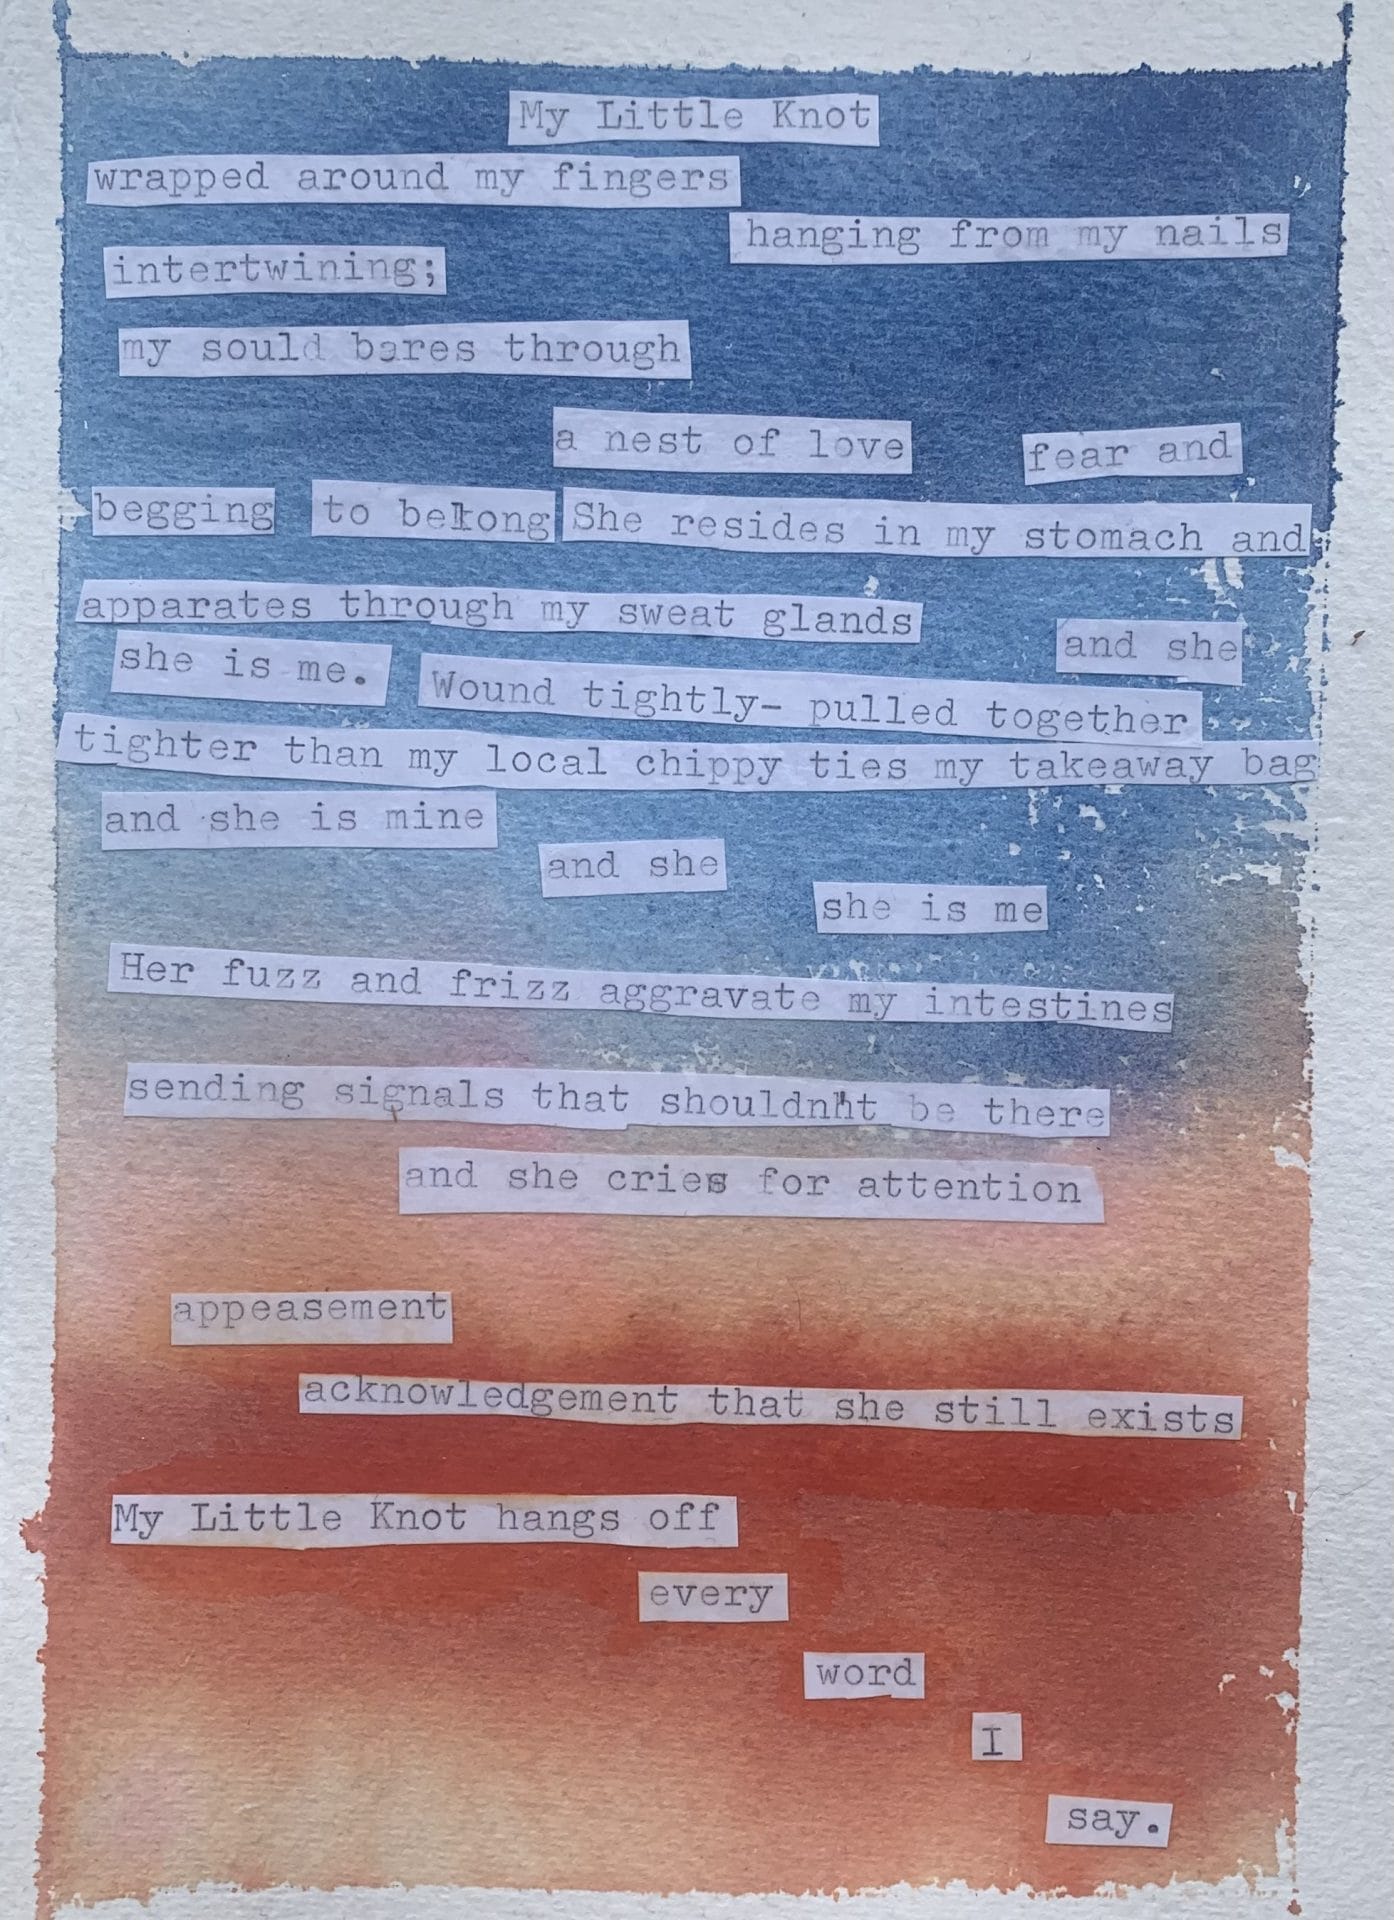 My Little Knot
wrapped around my fingers
hanging from my nails
intertwining;
my sould bares through
a nest of love fear and
begging to belong She resides in my stomach and
apparates through my sweat glands and she
she is me. Wound tightly- pulled together
tighter than my local chippy ties my takeaway bag
and she is mine
and she
she is me
Her fuzz and frizz aggravate my intestines
sending signals that shouldn't be there
and she cries for attention
appeasement
acknowledgement that she still exists
My Little Knot hangs off
every
word
I
say.